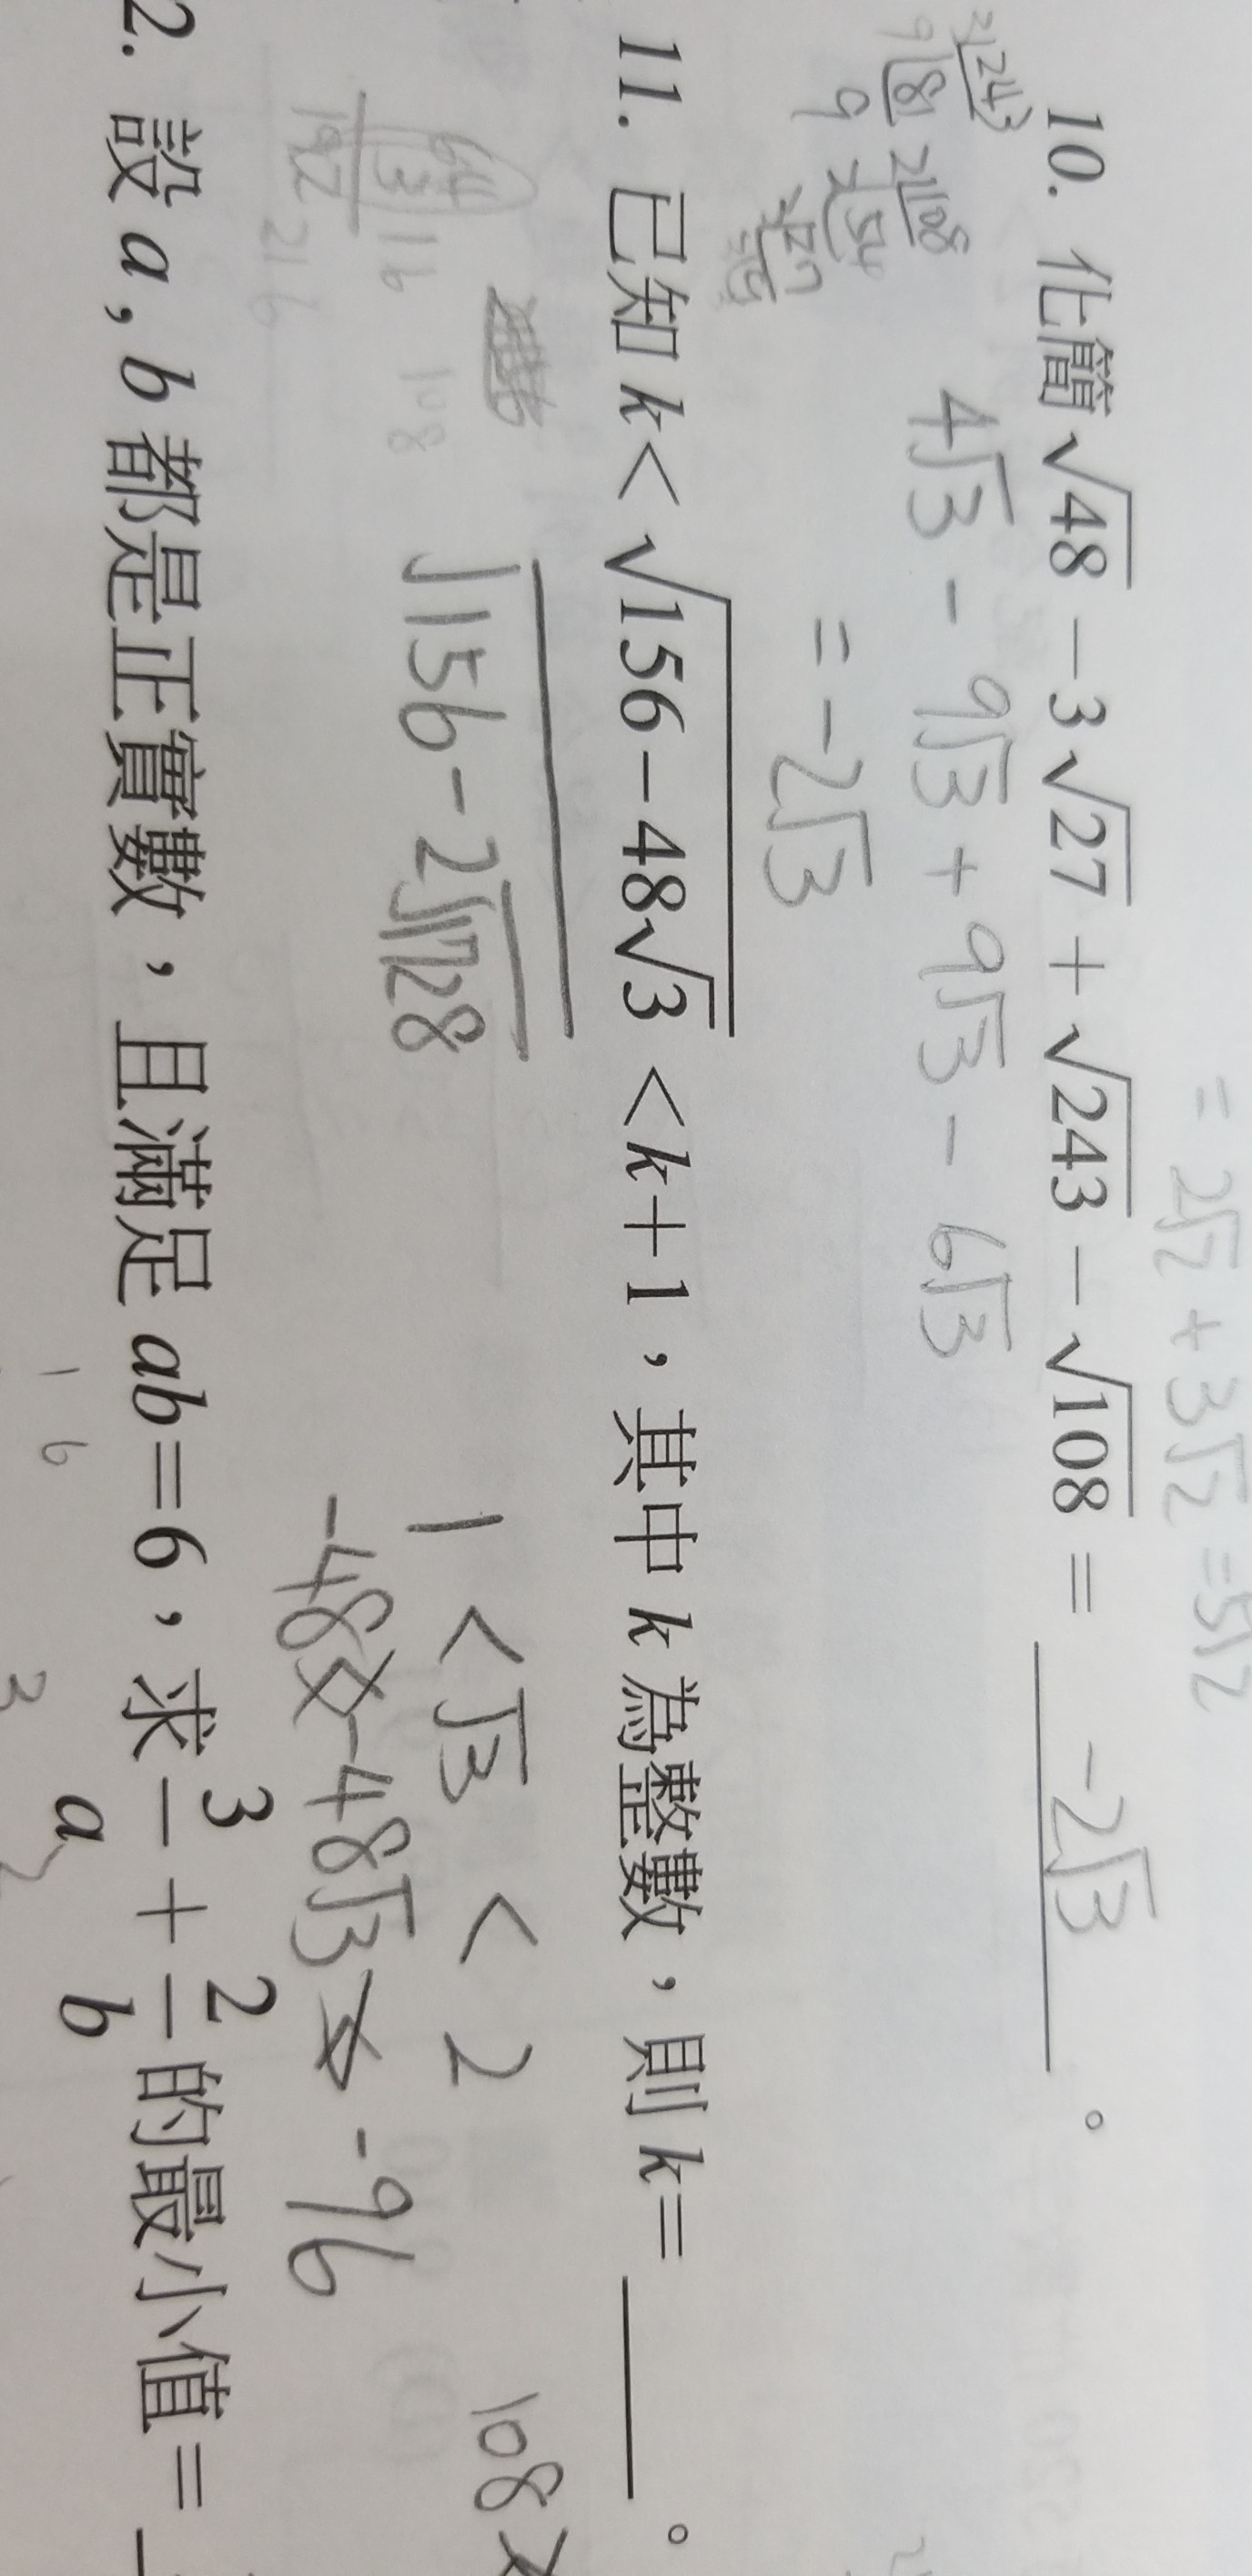 = 2√2 + 3√2 = 5√2
10. 化簡 √48 − 3√27 + √243 − √108 = -2√3 。
4√3 - 9√3 + 9√3 - 6√3
= -2√3
11. 已知 k < √(156−48√3) < k+1，其中 k 為整數，則 k= ____ 。
√(156-2√1728)
1 < √3 < 2
-48 -48√3 -96
108
2. 設 a , b 都是正實數，且滿足 ab=6，求 3/a + 2/b 的最小值 =
1 6
3
2